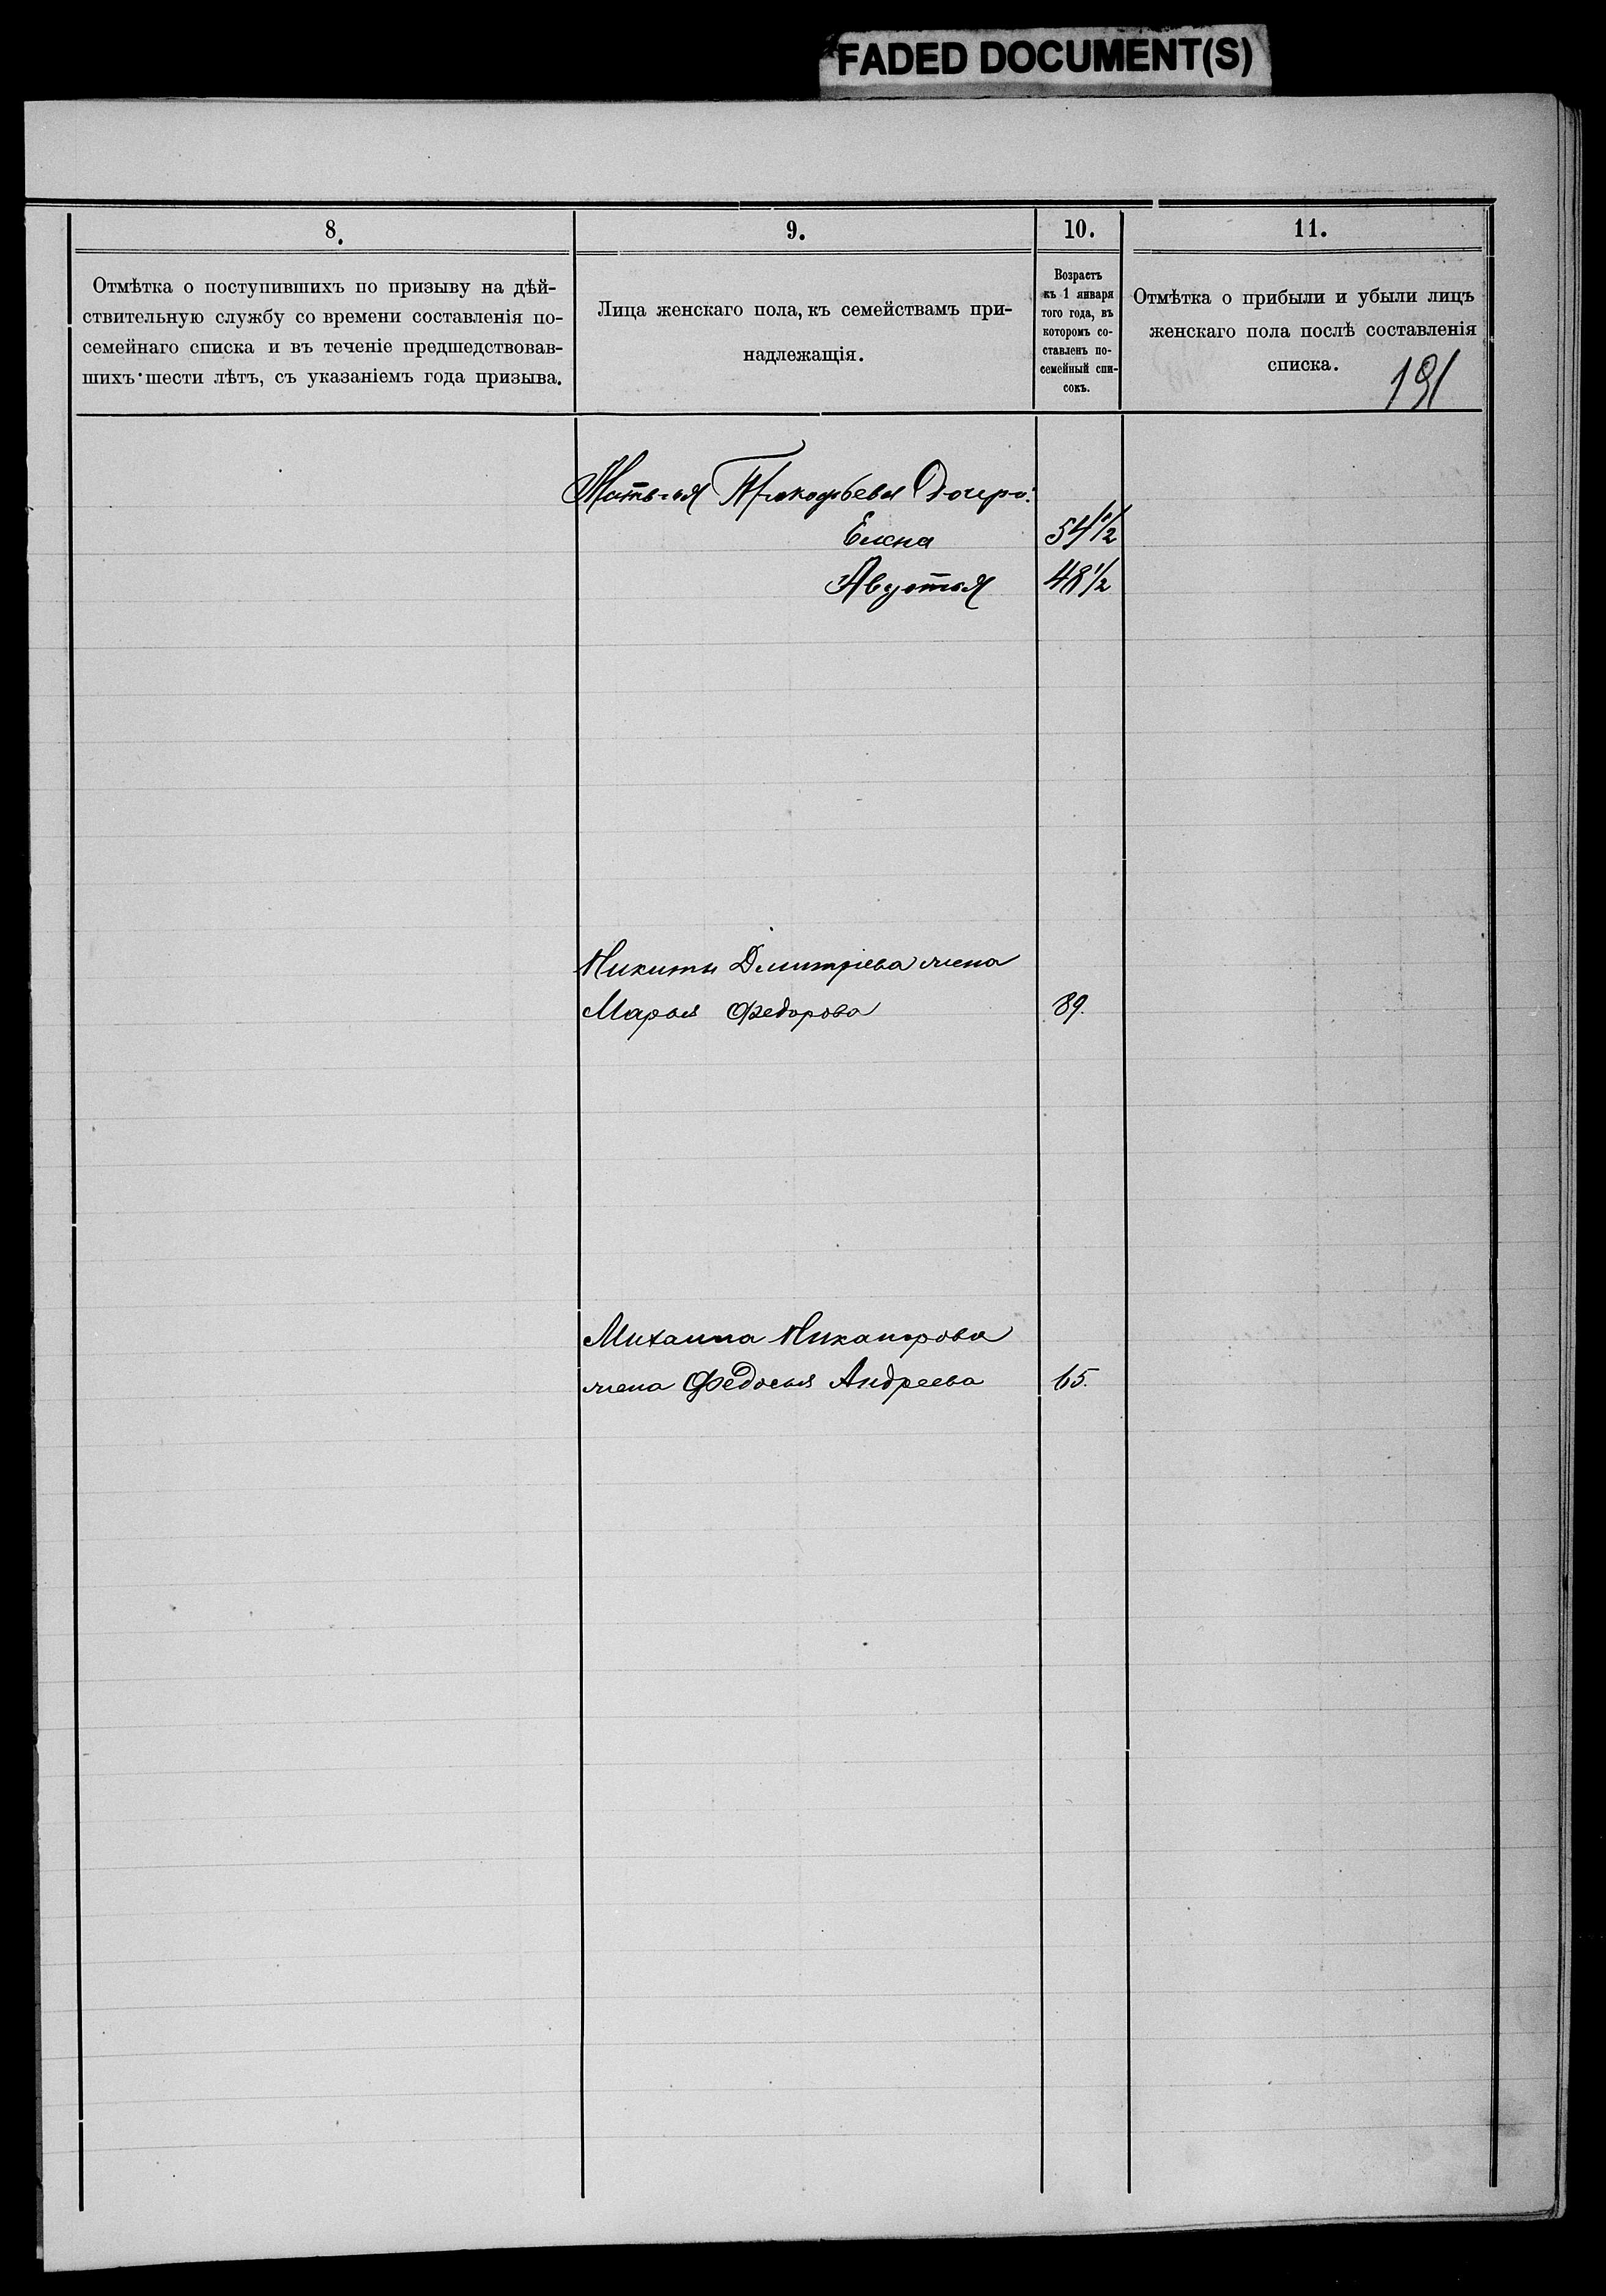 FADED DOCUMENT(S)
8.
Отмѣтка о поступившихъ по призыву на дѣй-
ствительную службу со времени составленія по-
семейнаго списка и въ теченіе предшедствовав-
шихъ шести лѣтъ, съ указаніемъ года призыва.
9.
Лица женскаго пола, къ семействамъ при-
надлежащія.
10.
Возрастъ
къ 1 января
того года, въ
которомъ со-
ставленъ по-
семейный спи-
сокъ.
11.
Отмѣтка о прибыли и убыли лицъ
женскаго пола послѣ составленія
списка.
191
Прокофьева Дочери:
Елена 54 1/2
Авдотья 48 1/2
Никиты Дмитріева жена
Марья Федорова 89.
Михаила Никанорова
жена Федосья Андреева 65.